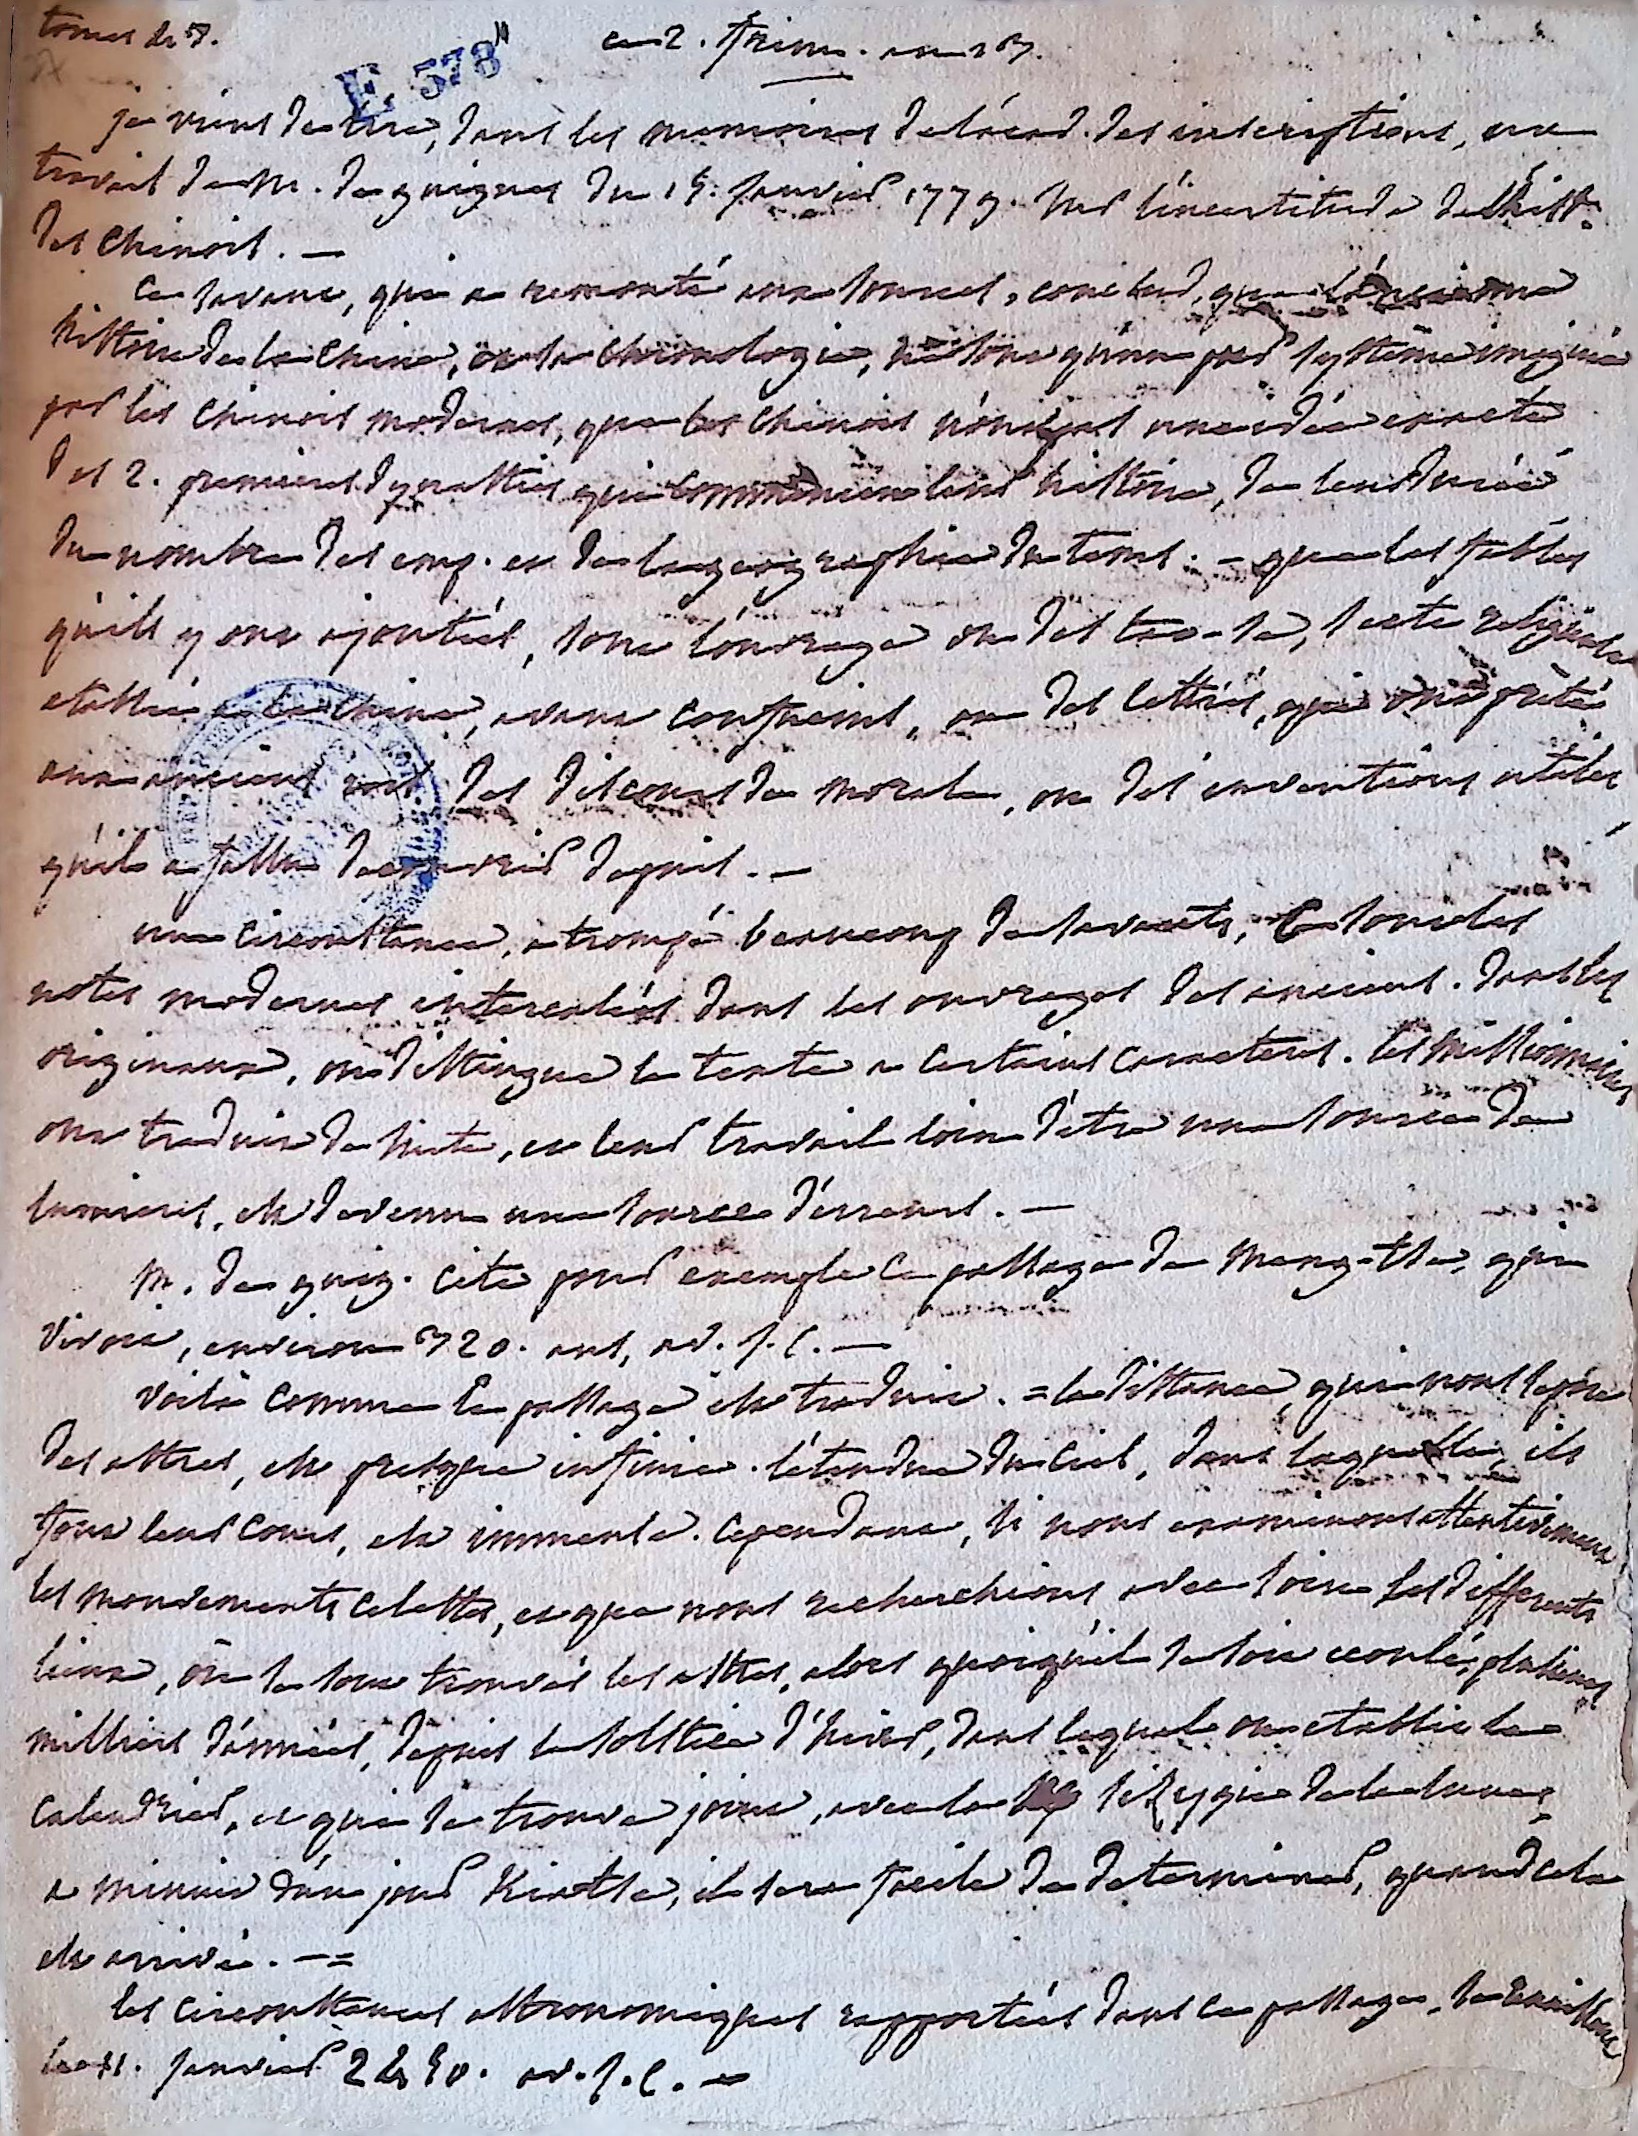 ce 2. frim. an 13.
E 578"
je viens de lire, dans les memoires de l'acad. des inscriptions, un
travail de M. de guignes du 15. janvier 1779. sur l'incertitude de l'hist.
des chinois. —
Ce savant, qui a remonté aux sources, conclud, que l'ancienne
histoire de la chine, et sa chronologie, ne sont qu'un pur systême imaginé
par les chinois modernes, que les chinois n'ont pas une idée exacte
des 2. premieres dynasties qui commencent leur histoire, de leur durée
du nombre des emp. et de la geographie du tems. — que les fables
qu'ils y ont ajoutées, sont l'ouvrage ou des tao-se, secte religieuse
etablie a la chine, avant confucius, ou des lettrés, qui ont prêté
aux anciens rois des discours de morale, ou des inventions utiles
qu'il a fallu decouvrir depuis. —
une circonstance, a trompé beaucoup de savants, ce sont les
notes modernes intercalées dans les ouvrages des anciens. dans les
originaux, on distingue le texte a certains caracteres. les missionnaires
ont traduit de suite, et leur travail loin d'être une source de
lumieres, est devenu une source d'erreurs. —
M. de guig. cite pour exemple ce passage de Meng-tse, qui
vivoit, environ 320. ans, av. J. C. —
Voilà comme le passage est traduit. = la distance, qui nous separe
des astres, est presque infinie. l'étendue du ciel, dans laquelle ils
font leur cours, est immense. cependant, si nous examinons attentivement
les mouvements celestes, et que nous recherchions avec soin les differents
lieux, où se sont trouvés les astres, alors quoiqu'il se soit ecoulé, plusieurs
milliers d'années, depuis le solstice d'hiver, dans lequel on etablit le
calendrier, et qui se trouve joint, avec la sizygie de la lune,
a minuit d'un jour Kiatse, il sera facile de determiner, quand cela
est arrivé. — =
les circonstances astronomiques rapportées dans ce passage, se
janvier av. J. C. —